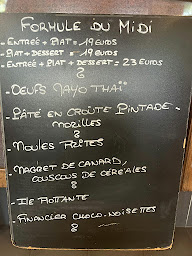 FORMULE DU MIDI
- ENTREÉ + PLAT = 19 EUROS
- PLAT + DESSERT = 19 EUROS
- ENTREÉ + PLAT + DESSERT = 23 EUROS
- OEUFS MAYO THAÏ
- PÂTÉ EN CROÛTE PINTADE-
MORILLES
- MOULES FRITES
- MAGRET DE CANARD,
COUSCOUS DE CÉRÉALES
- ILE FLOTTANTE
- FINANCIER CHOCO-NOISETTES